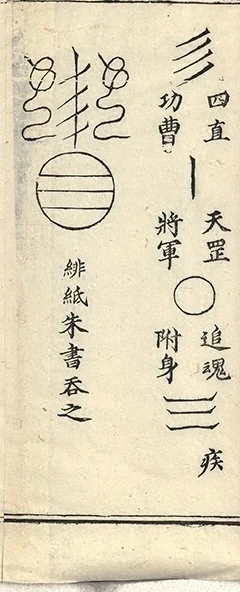 四直
功曹
天罡
將軍
追魂
附身
疾
緋紙朱書吞之